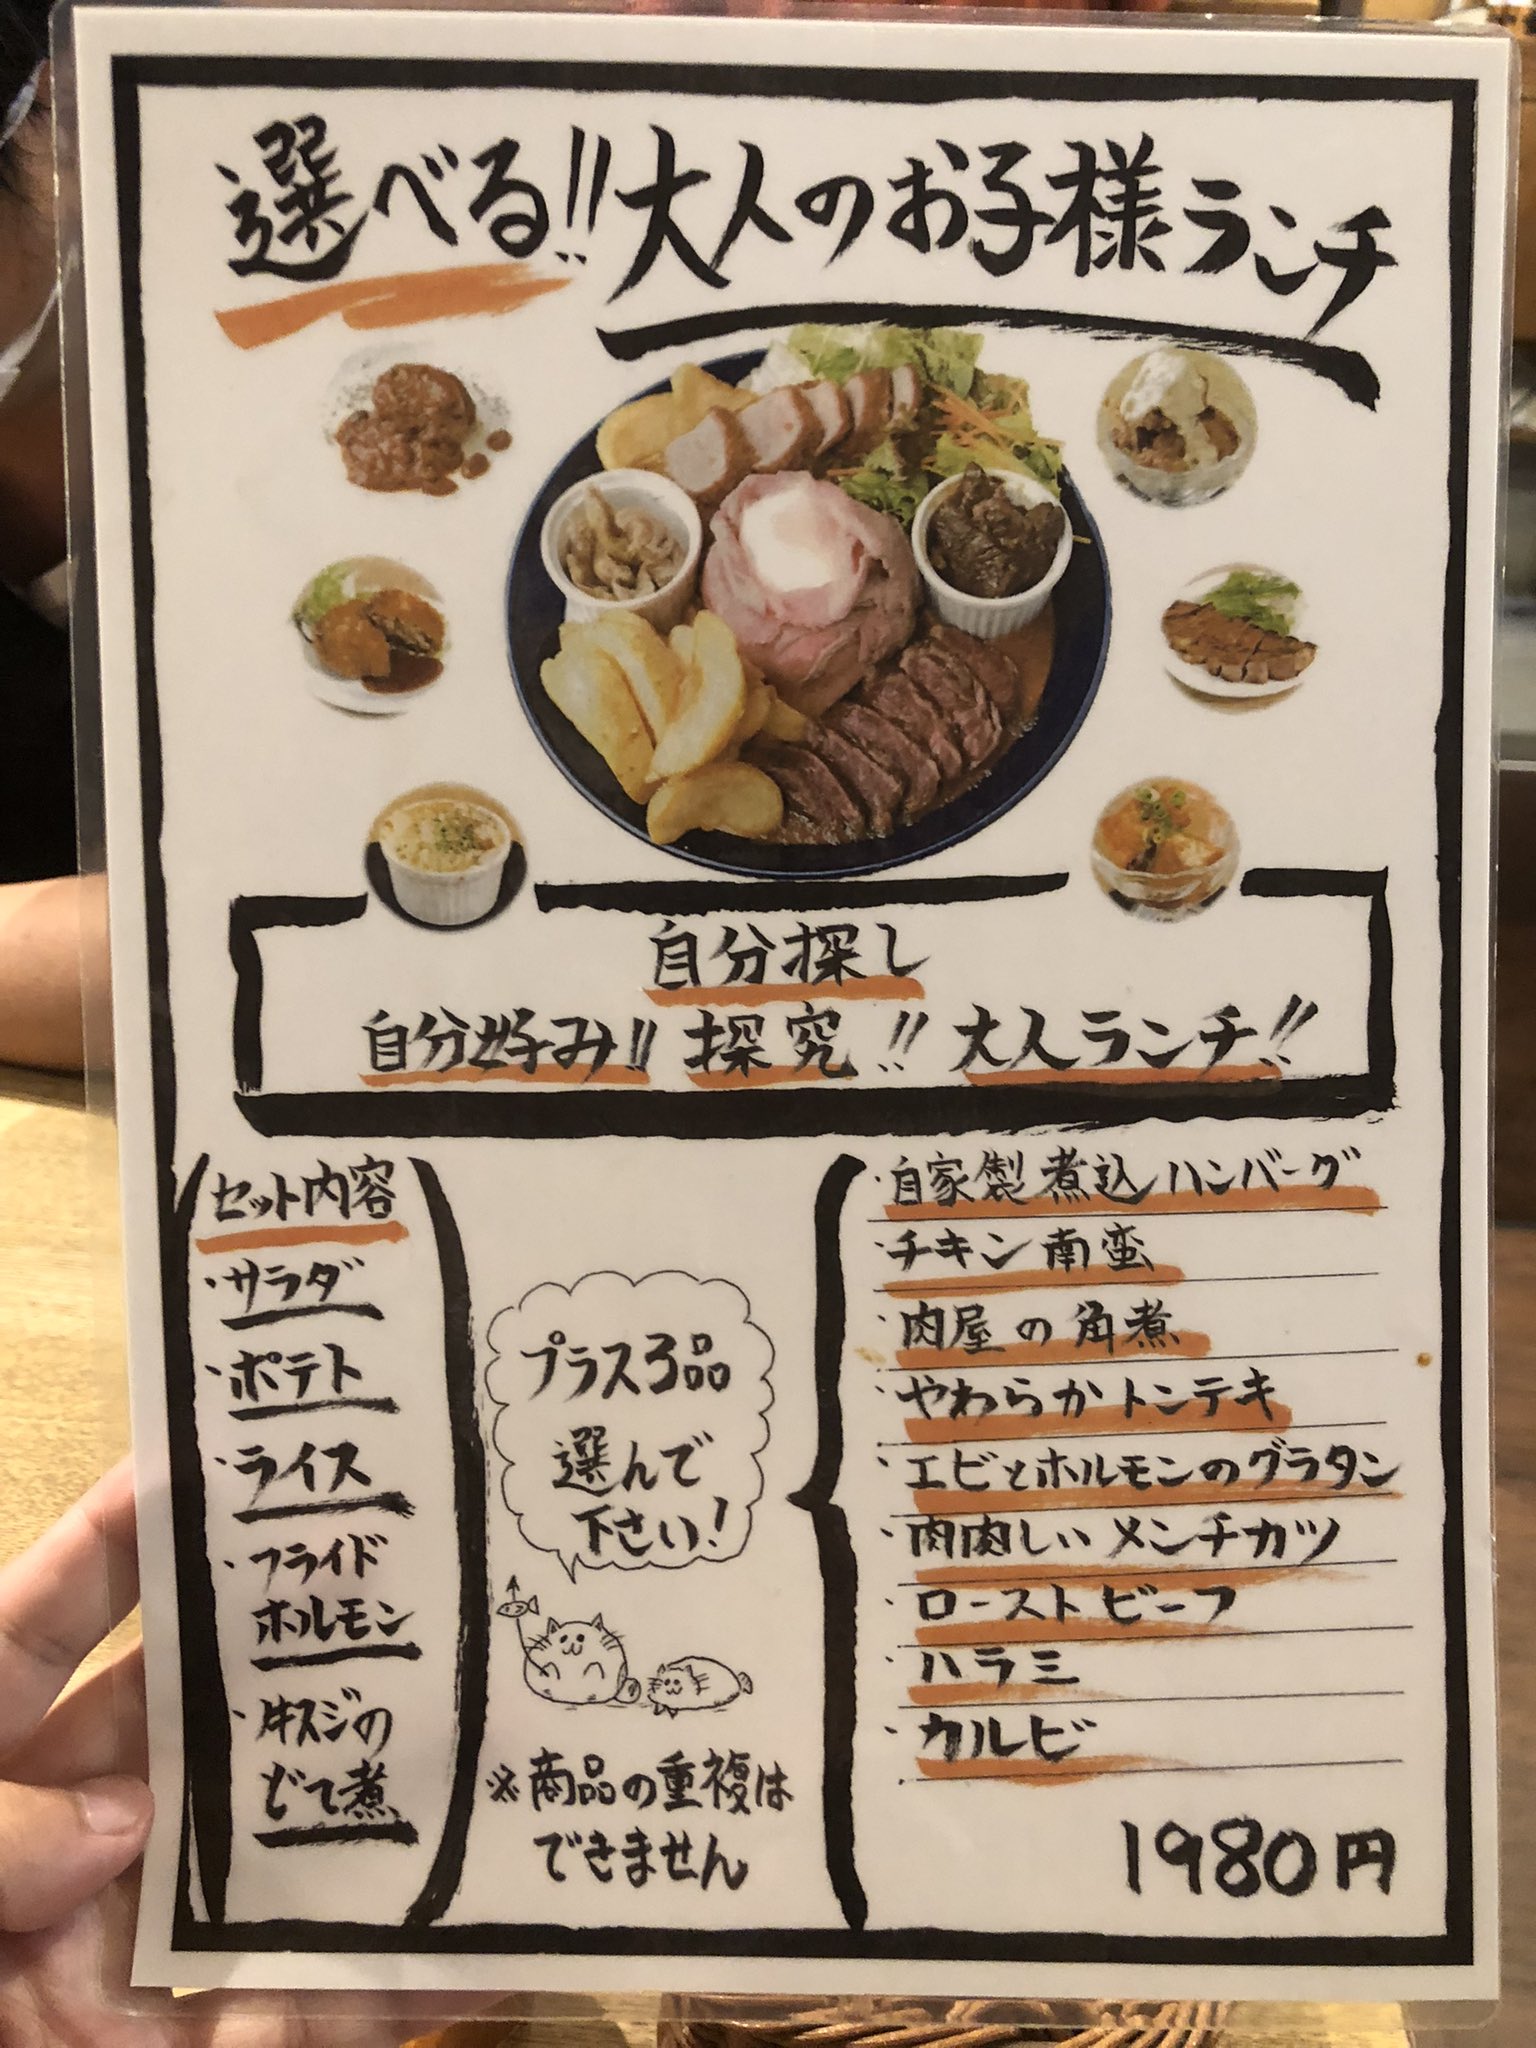 選べる!!大人のお子様ランチ
自分探し
自分好み!! 探究!! 大人ランチ!!
セット内容
・サラダ
・ポテト
・ライス
・フライド
ホルモン
・牛スジの
どて煮
プラス3品
選んで
下さい!
※商品の重複は
できません
・自家製煮込ハンバーグ
・チキン南蛮
・肉屋の角煮
・やわらかトンテキ
・エビとホルモンのグラタン
・肉肉しいメンチカツ
・ローストビーフ
・ハラミ
・カルビ
1980円